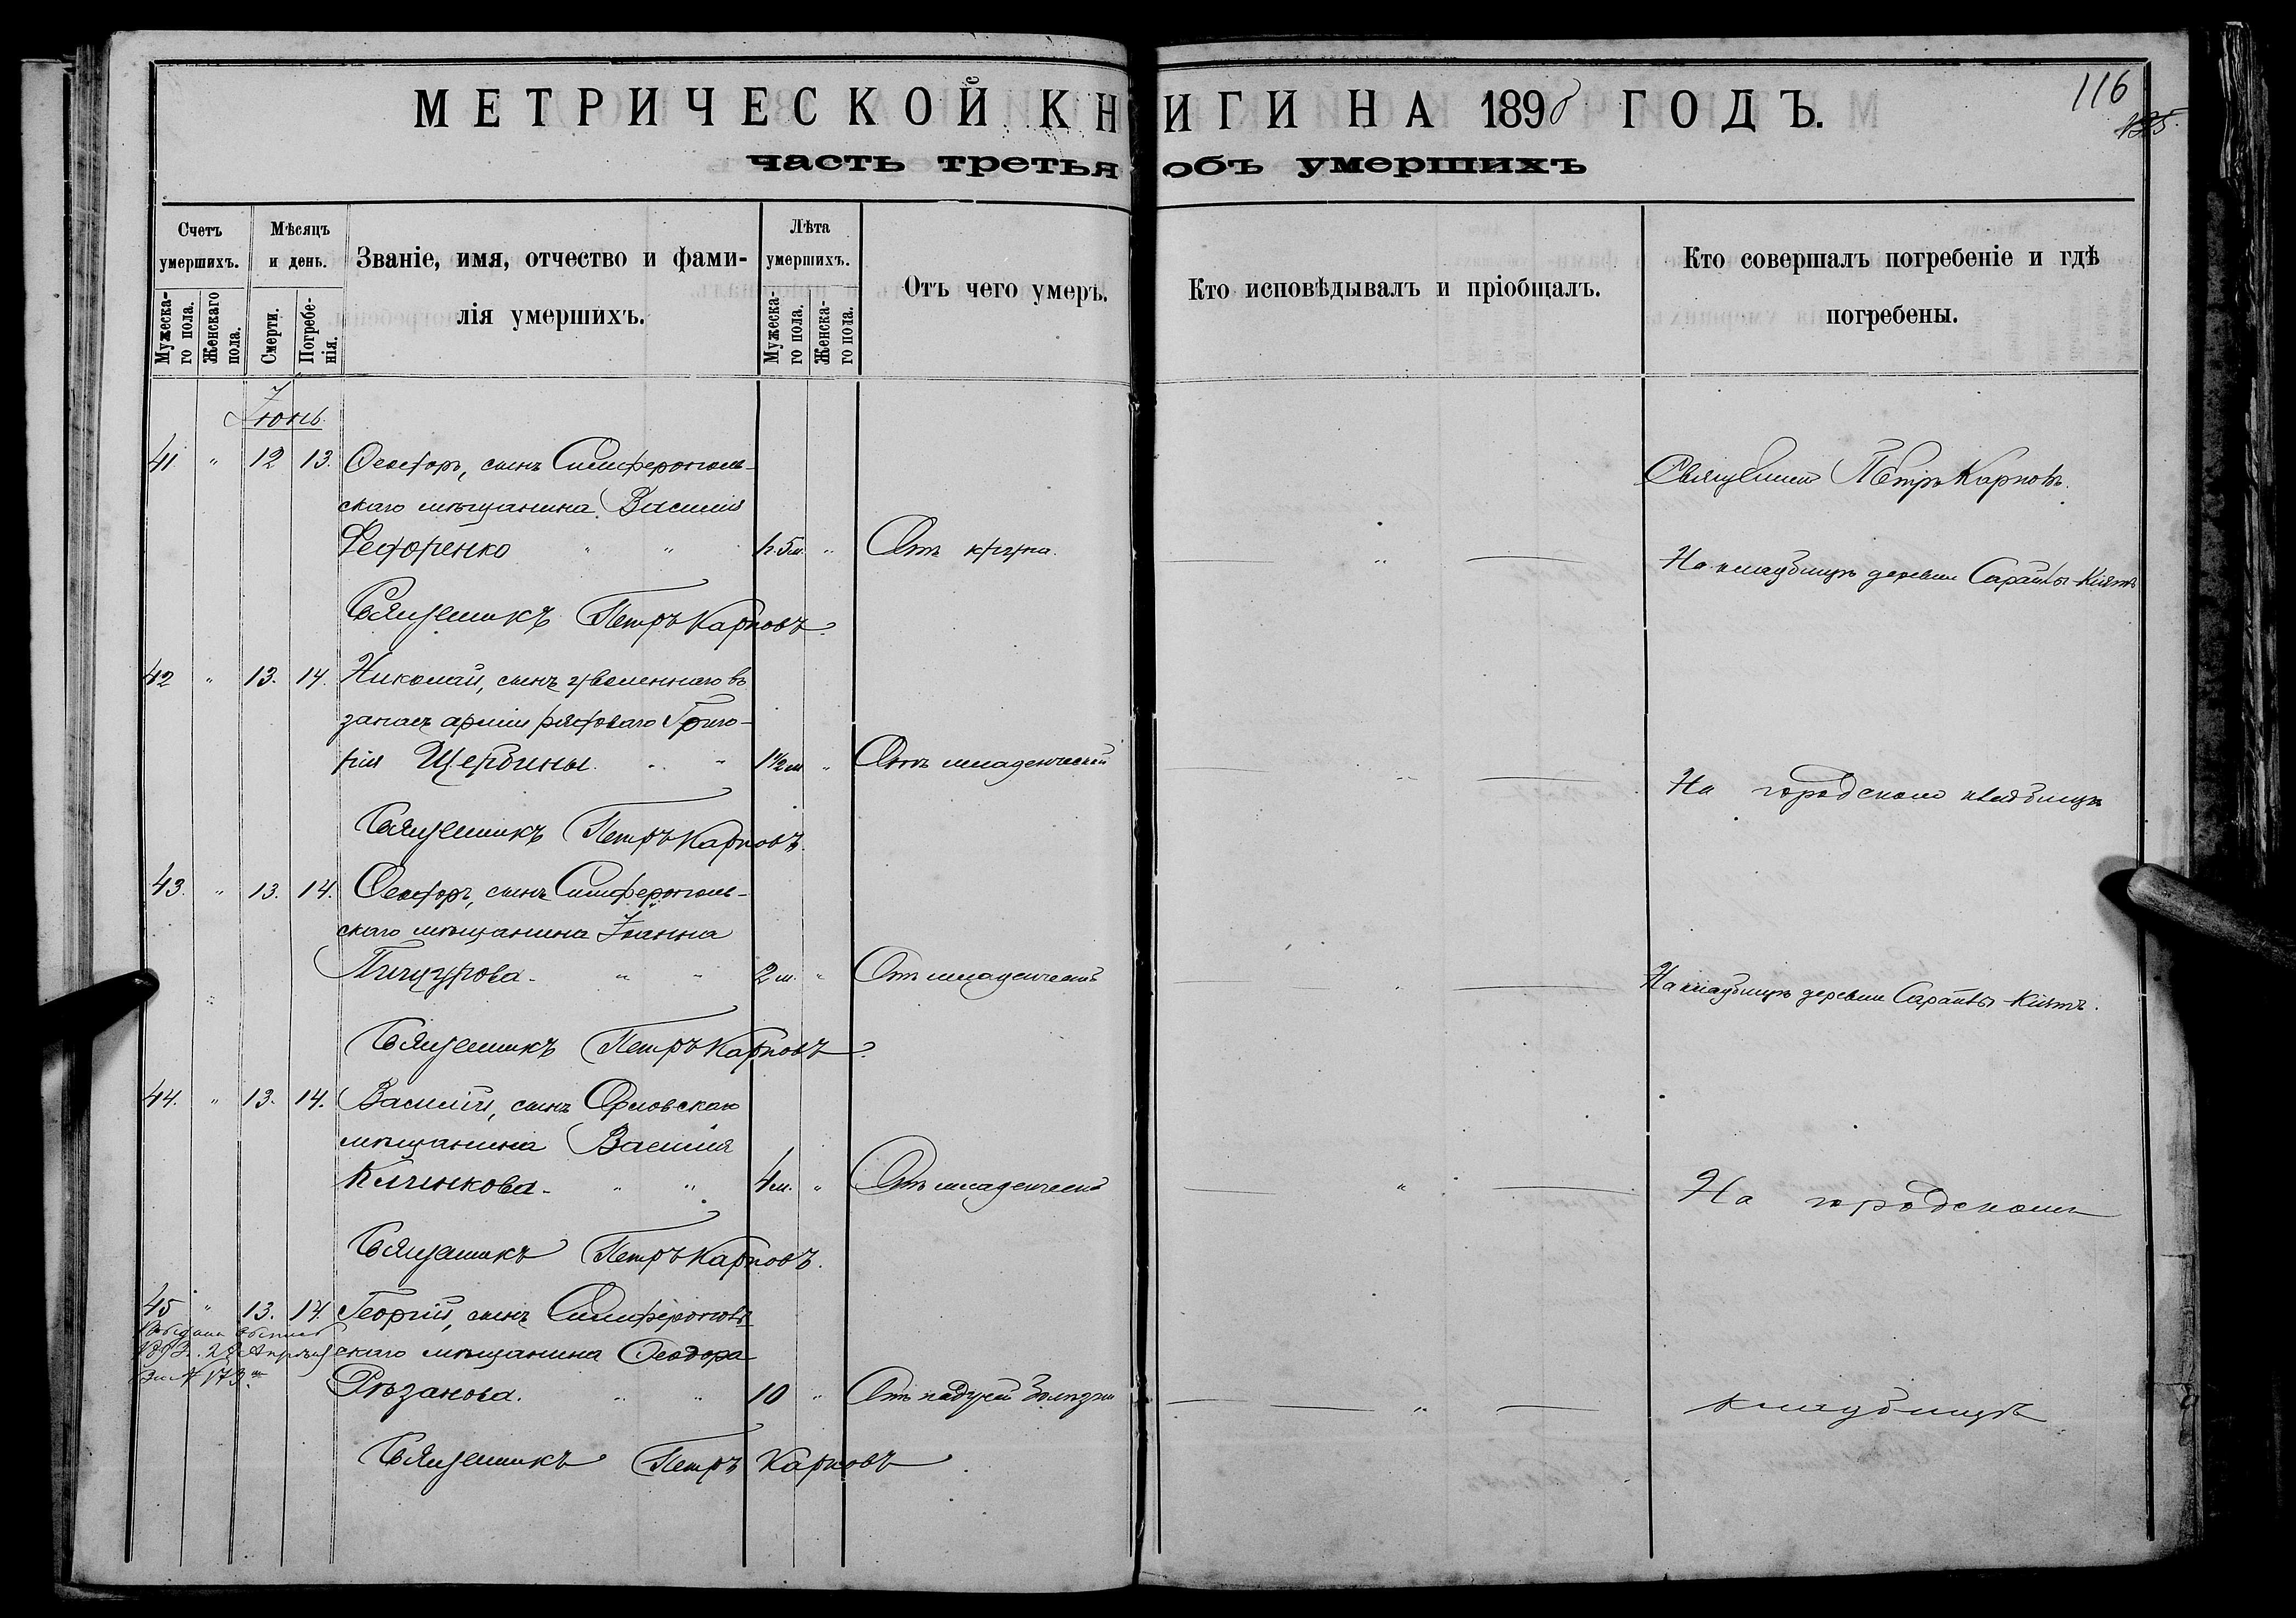 МЕТРИЧЕСКОЙ КНИГИ НА 1898 ГОДЪ.
116
часть третья объ умершихъ
Счетъ умершихъ.
Мужеска-го пола.
Женскаго пола.
Мѣсяцъ и день.
Смерти.
Погребе-нія.
Званіе, имя, отчество и фами-
лія умершихъ.
Лѣта умершихъ.
Мужеска-го пола.
Женска-го пола.
Отъ чего умеръ.
Кто исповѣдывалъ и пріобщалъ.
Кто совершалъ погребеніе и гдѣ
погребены.
Іюнь.
41 " 12 13. Ѳеодоръ, сынъ Симферополь-
Священникъ Петръ Карповъ.
скаго мѣщанина Василія
Федоренко " " 1г. 5м. " Отъ крупа. " На кладбищѣ деревни Сарайлы-Кіятъ
Священникъ Петръ Карповъ.
42 " 13. 14. Николай, сынъ уволеннаго въ
запасъ арміи рядоваго Григо-
рія Щербины. " " 1½м " Отъ младенческой " На городскомъ кладбищѣ
Священникъ Петръ Карповъ.
43. " 13. 14. Ѳеодоръ, сынъ Симферополь-
скаго мѣщанина Іоанна
Пичугрова " " 2м. " Отъ младенческой " На кладбищѣ деревни Сарайлы-Кіятъ.
Священникъ Петръ Карповъ.
44. " 13. 14. Василій, сынъ Орловскаго
мѣщанина Василія
Клинкова " " 4м. " Отъ младенческой " На городскомъ
Священникъ Петръ Карповъ.
45 " 13. 14. Георгій, сынъ Симферополь-
скаго мѣщанина Ѳеодора
За № 173
Рѣзанова. " " 10 " Отъ падучей болѣзни " кладбищѣ
Священникъ Петръ Карповъ